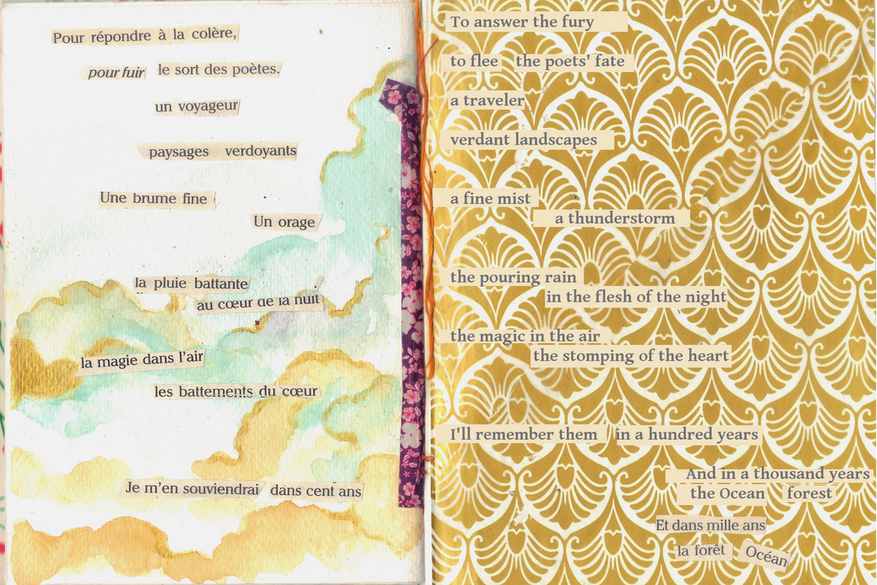 Pour répondre à la colère,
pour fuir le sort des poètes.
un voyageur
paysages verdoyants
Une brume fine
Un orage
la pluie battante
au cœur de la nuit
la magie dans l'air
les battements du cœur
Je m'en souviendrai dans cent ans
To answer the fury
to flee the poets' fate
a traveler
verdant landscapes
a fine mist
a thunderstorm
the pouring rain
in the flesh of the night
the magic in the air
the stomping of the heart
I'll remember them in a hundred years
And in a thousand years
the Ocean forest
Et dans mille ans
la forêt Océan